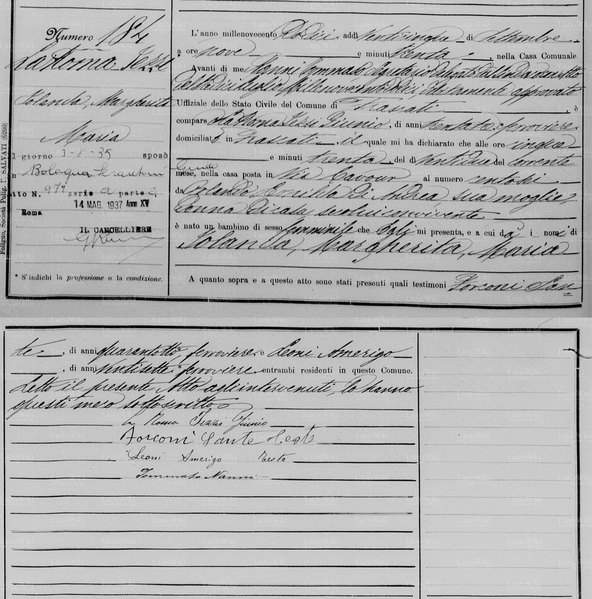 Numero 184
La Roma Tezzi
Iolanda, Margherita
Maria
Il giorno 3-8-35 sposò
in Bologna
atto N. 979 parte a
14 MAG. 1937 Anno XV
Roma
IL CANCELLIERE
* S'indichi la professione o la condizione.
Foligno, Società Polig. F. SALVATI (6269)
L'anno millenovecento dodici, addì venticinque di Settembre
a ore nove e minuti trenta, nella Casa Comunale
Avanti di me Nanni Tommaso, Segretario delegato dal Sindaco con atto
millenovecento debitamente approvato
Uffiziale dello Stato Civile del Comune di Frascati, è
comparso La Roma Tezzi Giunio, di anni trenta ferroviere
domiciliato in Frascati, il quale mi ha dichiarato che alle ore
e minuti trenta del dì ventidue del corrente
mese, nella casa posta in Via Cavour al numero ventotto
da di Andrea, sua moglie,
seco lui convivente
è nato un bambino di sesso femminile che egli mi presenta, e a cui dà i nomi di
Iolanda, Margherita, Maria
A quanto sopra e a questo atto sono stati presenti quali testimoni Forconi San
te, di anni quarantotto, ferroviere e Leoni Amerigo
, di anni ventisette, ferroviere, entrambi residenti in questo Comune.
Letto il presente Atto agli intervenuti, lo hanno
questi meco sottoscritto
La Roma Tezzi Giunio
Forconi Sante Teste
Leoni Amerigo Teste
Tommaso Nanni